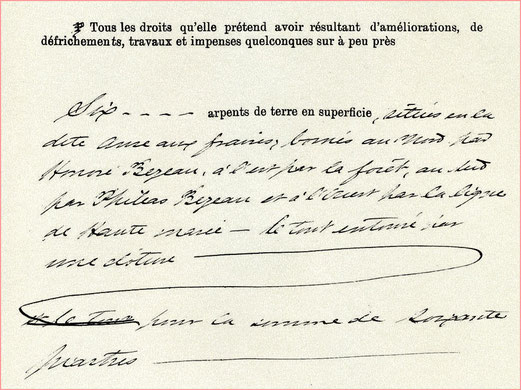 Tous les droits qu'elle prétend avoir résultant d'améliorations, de
défrichements, travaux et impenses quelconques sur à peu près
Six - - - - arpents de terre en superficie, situés en la
dite Anse aux fraises, bornés au Nord par
Honoré Bezeau, à l'est par la forêt, au sud
par Philéas Bezeau et à l'Ouest par la ligne
de Haute marée — le tout entouré par
une clôture
pour la somme de soixante
piastres